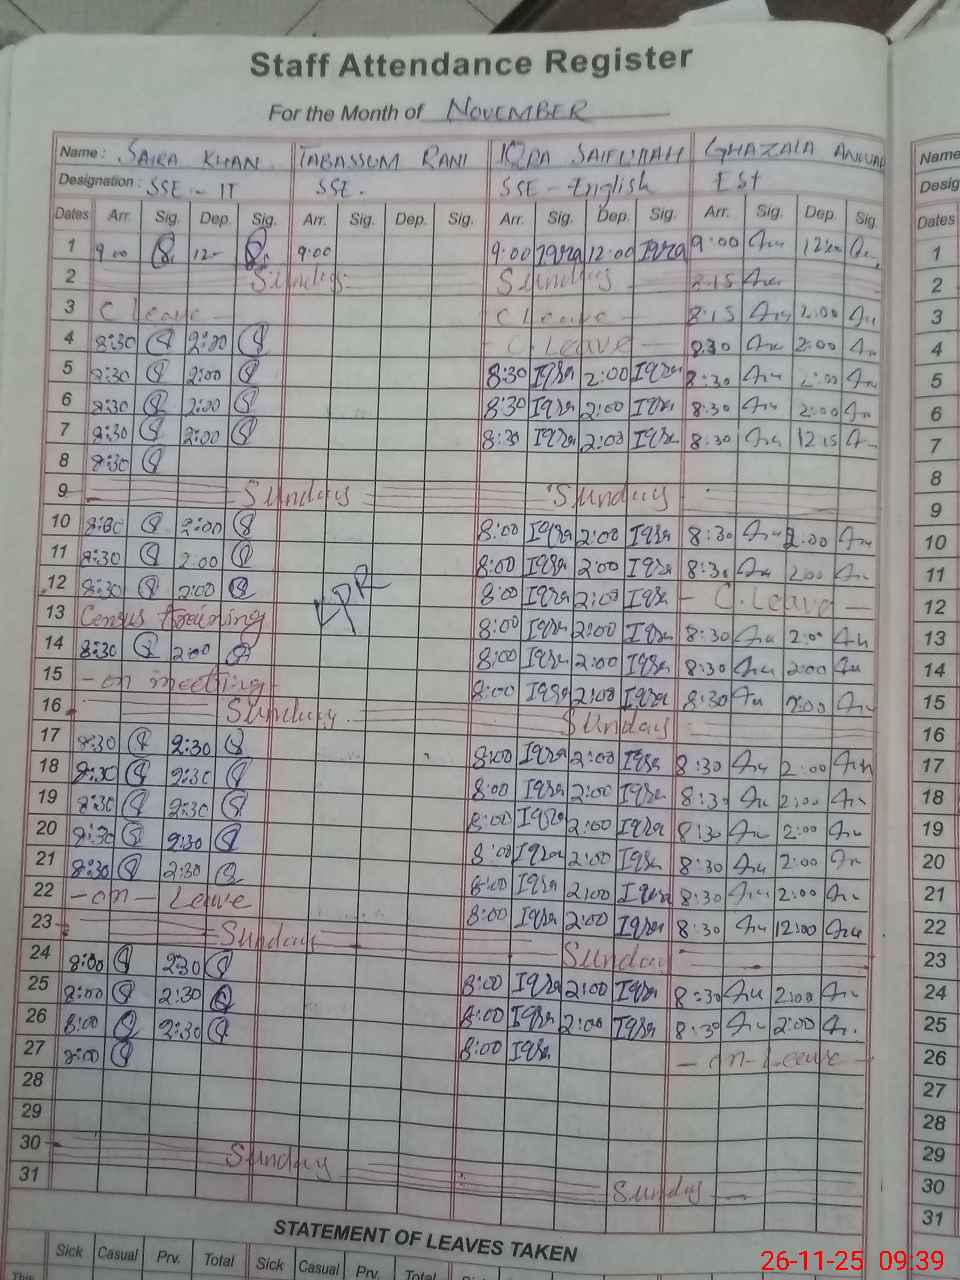 Staff Attendance Register
For the Month of NOVEMBER
Name : SAIRA KHAN TABASSUM RANI IQRA SAIFULLAH GHAZALA Name
Designation : SSE - IT SSE. SSE - English EST Desig
Dates Arr. Sig. Dep. Sig. Arr. Sig. Dep. Sig. Arr. Sig. Dep. Sig. Arr. Sig. Dep. Sig. Dates
1 9:00 12- 9:00 9:00 Iqra 12:00 Iqra 9:00 12:00 1
2 Sunday Sunday 8:15 2
3 C Leave - C Leave - 8:15 2:00 3
4 8:30 2:00 - C. Leave - 8:30 2:00 4
5 8:30 2:00 8:30 Iqra 2:00 Iqra 8:30 2:00 5
6 8:30 2:00 8:30 Iqra 2:00 Iqra 8:30 2:00 6
7 8:30 2:00 8:30 Iqra 2:00 Iqra 8:30 12:15 7
8 8:30 8
9 Sunday Sunday 9
10 8:00 2:00 8:00 Iqra 2:00 Iqra 8:30 2:00 10
11 8:30 2:00 8:00 Iqra 2:00 Iqra 8:30 2:00 11
12 8:30 2:00 8:00 Iqra 2:00 Iqra - C. Leave - 12
13 Census training 8:00 Iqra 2:00 Iqra 8:30 2:00 13
14 8:30 2:00 8:00 Iqra 2:00 Iqra 8:30 2:00 14
15 - on meeting - 8:00 Iqra 2:00 Iqra 8:30 2:00 15
16 Sunday Sunday 16
17 8:30 2:30 8:00 Iqra 2:00 Iqra 8:30 2:00 17
18 8:30 2:30 8:00 Iqra 2:00 Iqra 8:30 2:00 18
19 8:30 2:30 8:00 Iqra 2:00 Iqra 8:30 2:00 19
20 8:30 2:30 8:00 Iqra 2:00 Iqra 8:30 2:00 20
21 8:30 2:30 8:00 Iqra 2:00 Iqra 8:30 2:00 21
22 - on - Leave 8:00 Iqra 2:00 Iqra 8:30 12:00 22
23 Sunday Sunday 23
24 8:00 2:30 8:00 Iqra 2:00 Iqra 8:30 2:00 24
25 8:00 2:30 8:00 Iqra 2:00 Iqra 8:30 2:00 25
26 8:00 2:30 8:00 Iqra - on - Leave - 26
27 8:00 27
28 28
29 29
30 Sunday Sunday 30
31 31
STATEMENT OF LEAVES TAKEN
Sick Casual Prv. Total Sick Casual Prv. Total
This
26-11-25 09:39